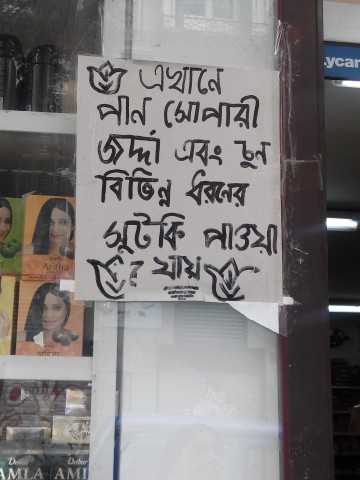 এখানে
পান সোপারী
জর্দ্দা এবং চুন
বিভিন্ন ধরনের
সুটকি পাওয়া
যায়
ycam
Amla
Dabur
AMLA
Dabur